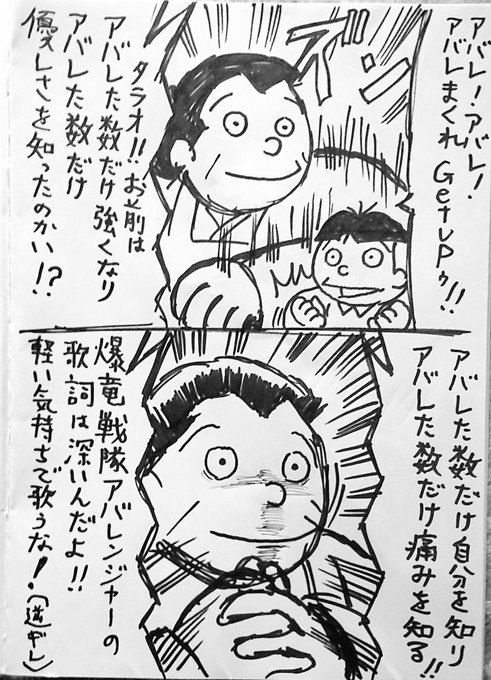 アバレ!アバレ!
アバレまくれ
GetUPゥ!!
ブン
タラオ!!お前は
アバレた数だけ強くなり
アバレた数だけ
優しさを知ったのかい!?
アバレた数だけ自分を知り
アバレた数だけ痛みを知る!!
爆竜戦隊アバレンジャーの
歌詞は深いんだよ!!
軽い気持ちで歌うな!(逆ギレ)